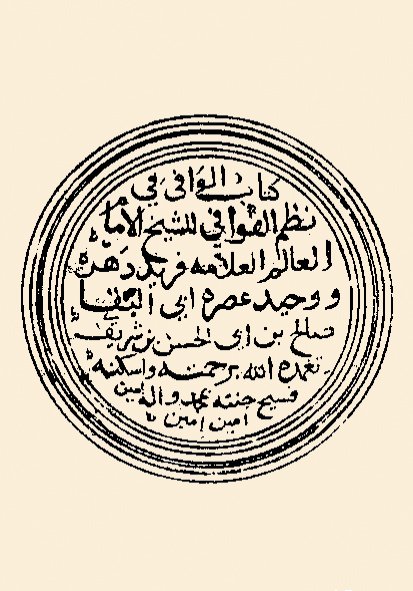 كتاب الوافي في
نظم القوافي للشيخ الامام
العالم العلامه فريد دهره
ووحيد عصره ابى البقا
صالح بن ابى الحسن بن شريف
تغمده الله برحمته واسكنه
فسيح جنته بمحمد واله امين
امين امين